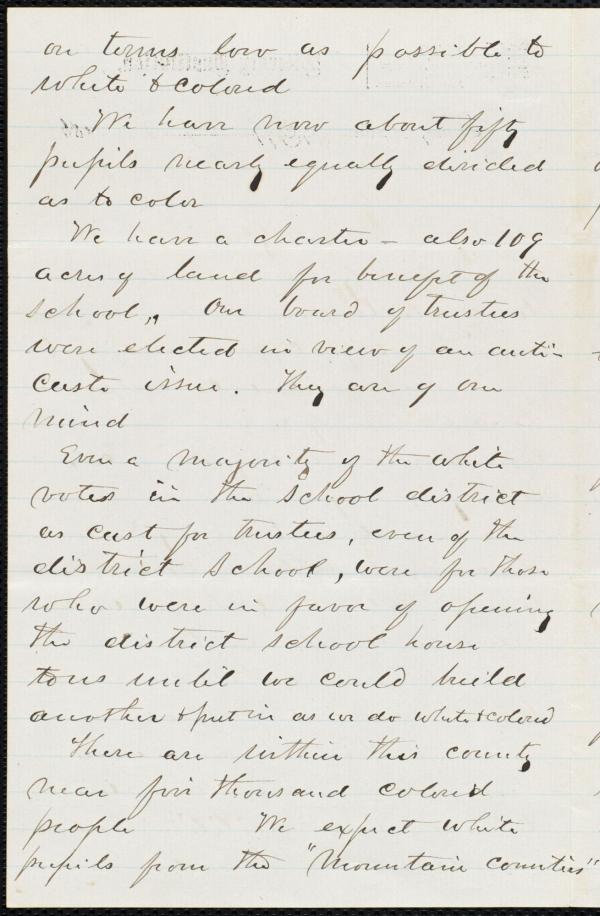 on terms low as possible to
white & colored
We have now about fifty
pupils nearly equally divided
as to color
We have a charter – also 109
acres of land for benefit of the
school,, Our board of trustees
were elected in view of an anti-
caste issue. They are of one
mind
Even a majority of the white
votes in the school district
as cast for trustees, even of the
district school, were for those
who were in favor of opening
the district school house
to us until we could build
another & put in as we do white & colored
There are within this county
near five thousand colored
people We expect white
pupils from the "Mountain counties"